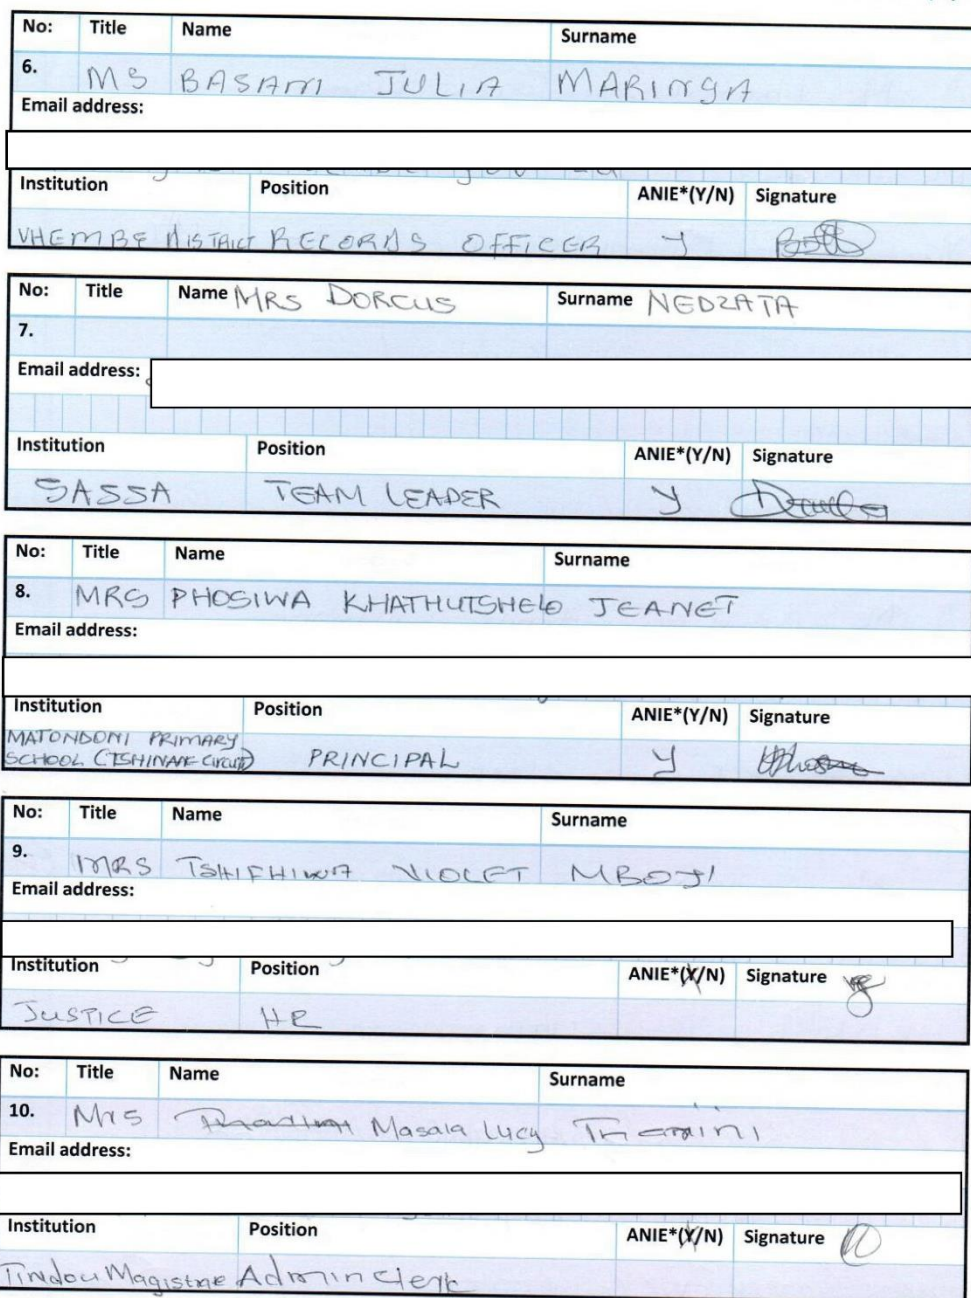 No: Title Name Surname
6. MS BASANI JULIA MARINGA
Email address:
Institution Position ANIE*(Y/N) Signature
VHEMBE DISTRICT RECORDS OFFICER Y
No: Title Name MRS DORCUS Surname NEDZATA
7.
Email address:
Institution Position ANIE*(Y/N) Signature
SASSA TEAM LEADER Y
No: Title Name Surname
8. MRS PHOSIWA KHATHUTSHELO JEANET
Email address:
Institution Position ANIE*(Y/N) Signature
MATONDONI PRIMARY
SCHOOL (TSHINANE Circuit) PRINCIPAL Y
No: Title Name Surname
9. MRS TSHIFHIWA VIOLET MBOYI
Email address:
Institution Position ANIE*(Y/N) Signature
JUSTICE HR
No: Title Name Surname
10. Mrs Masala Lucy
Email address:
Institution Position ANIE*(Y/N) Signature
Admin Clerk